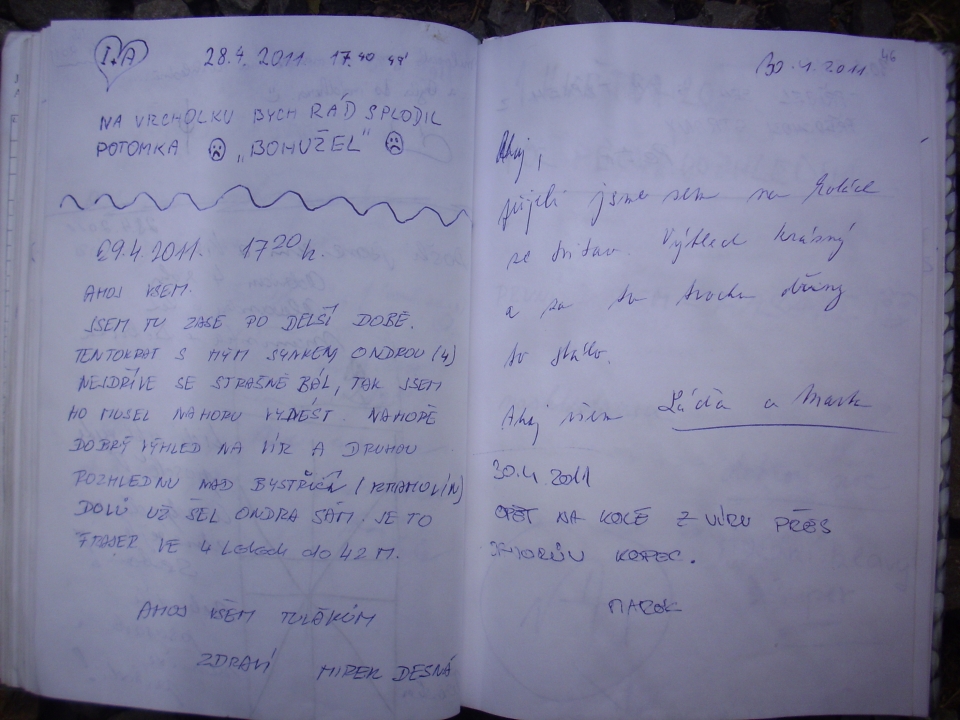 I+A 28.4.2011 17.40
NA VRCHOLKU BYCH RÁD SPLODIL
POTOMKA „BOHUŽEL"
29.4.2011. 17 20 h.
AHOJ VŠEM.
JSEM TU ZASE PO DELŠÍ DOBĚ.
TENTOKRAT S MÝM SYNKEM ONDROU (4)
NEJDŘÍVE SE STRAŠNĚ BÁL, TAK JSEM
HO MUSEL NAHORU VYNÉST. NAHOŘE
DOBRÝ VÝHLED NA VÍR A DRUHOU
ROZHLEDNU NAD BYSTŘICÍ (KARASÍN)
DOLŮ UŽ ŠEL ONDRA SÁM. JE TO
FRAJER VE 4 Letech do 42 M.
AHOJ VŠEM TULÁKŮM
ZDRAVÍ MIREK DESNÁ
30.4.2011
46
Ahoj,
přijeli jsme sem na kolách
ze Svitav. Výhled krásný
a za tu trochu dřiny
to stálo.
Ahoj všem Láďa a Mark
30.4.2011
OPĚT NA KOLE Z VÍRU PŘES
KOPEC.
MAREK